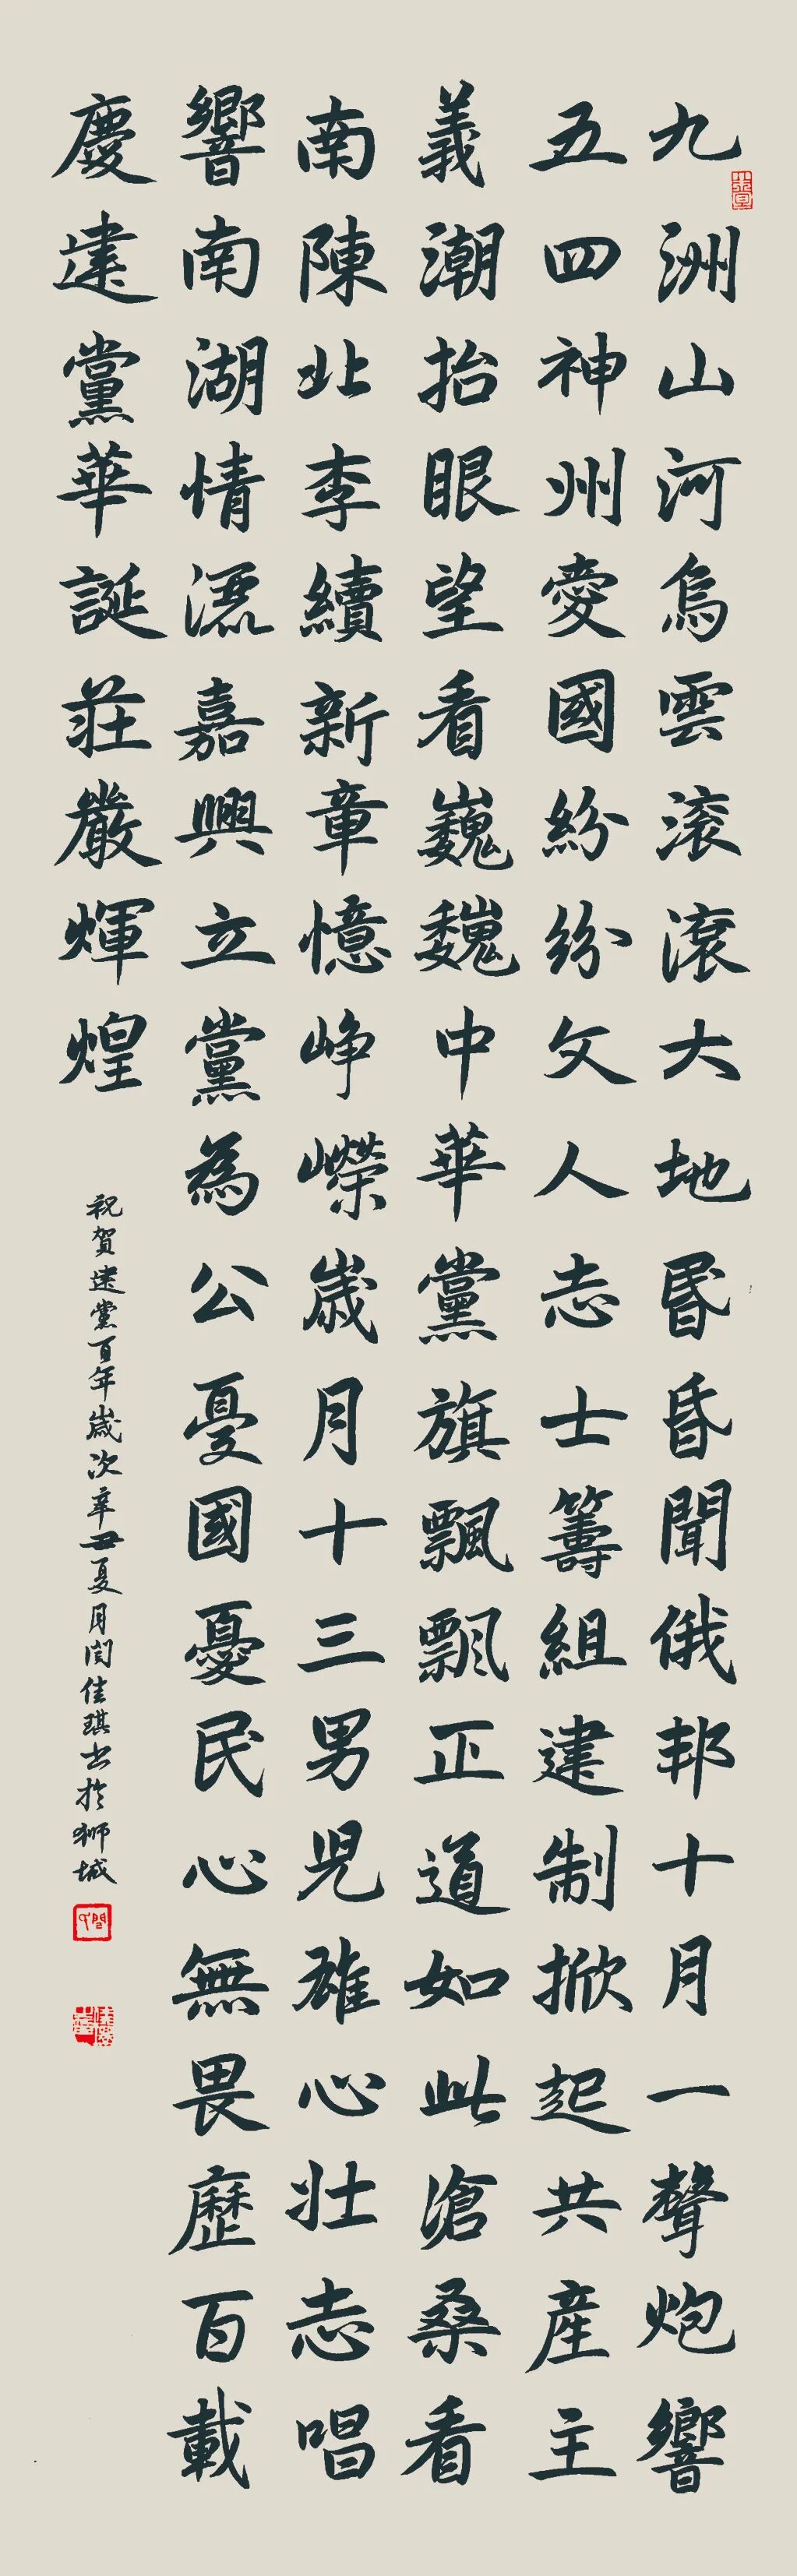 九洲山河烏雲滚滾大地昬昏聞俄邦十月一聲炮響
五四神州愛國紛紛文人志士籌組建制掀起共産主
義潮抬眼望看巍巍中華黨旗飄飄正道如此滄桑看
南陳北李續新章憶崢嶸歲月十三男児雄心壯志唱
響南湖情灑嘉興立黨為公憂國憂民心無畏歷百載
慶建黨華誕莊嚴輝煌
祝賀建黨百年歲次辛丑夏月閆佳琪书於狮城